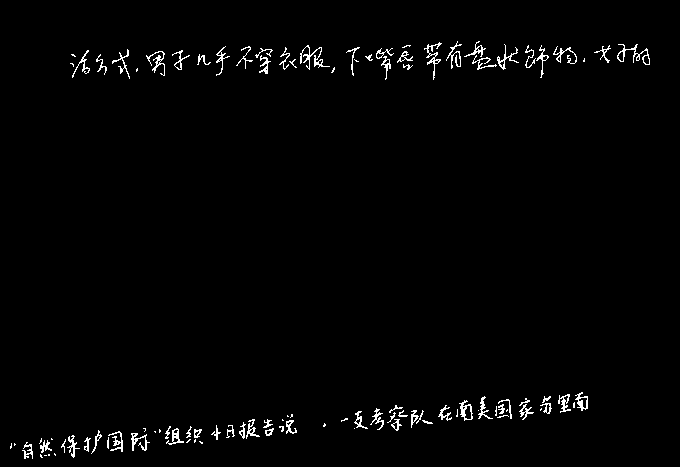 活方式,男子几乎不穿衣服,下嘴唇带有盘状饰物,女子的
“自然保护国际”组织4日报告说,一支考察队在南美国家苏里南